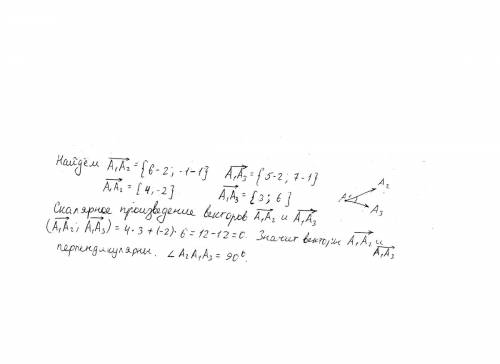 Найдём A₁A₂ = {6-2; -1-1} A₁A₃ = {5-2; 7-1}
A₁A₂ = {4, -2} A₁A₃ = {3; 6}
A₂
A₁
A₃
Скалярное произведение векторов A₁A₂ и A₁A₃
(A₁A₂; A₁A₃) = 4·3+(-2)·6=12-12=0. Значит векторы A₁A₂ и A₁A₃
перпендикулярны. ∠A₂A₁A₃ = 90°.